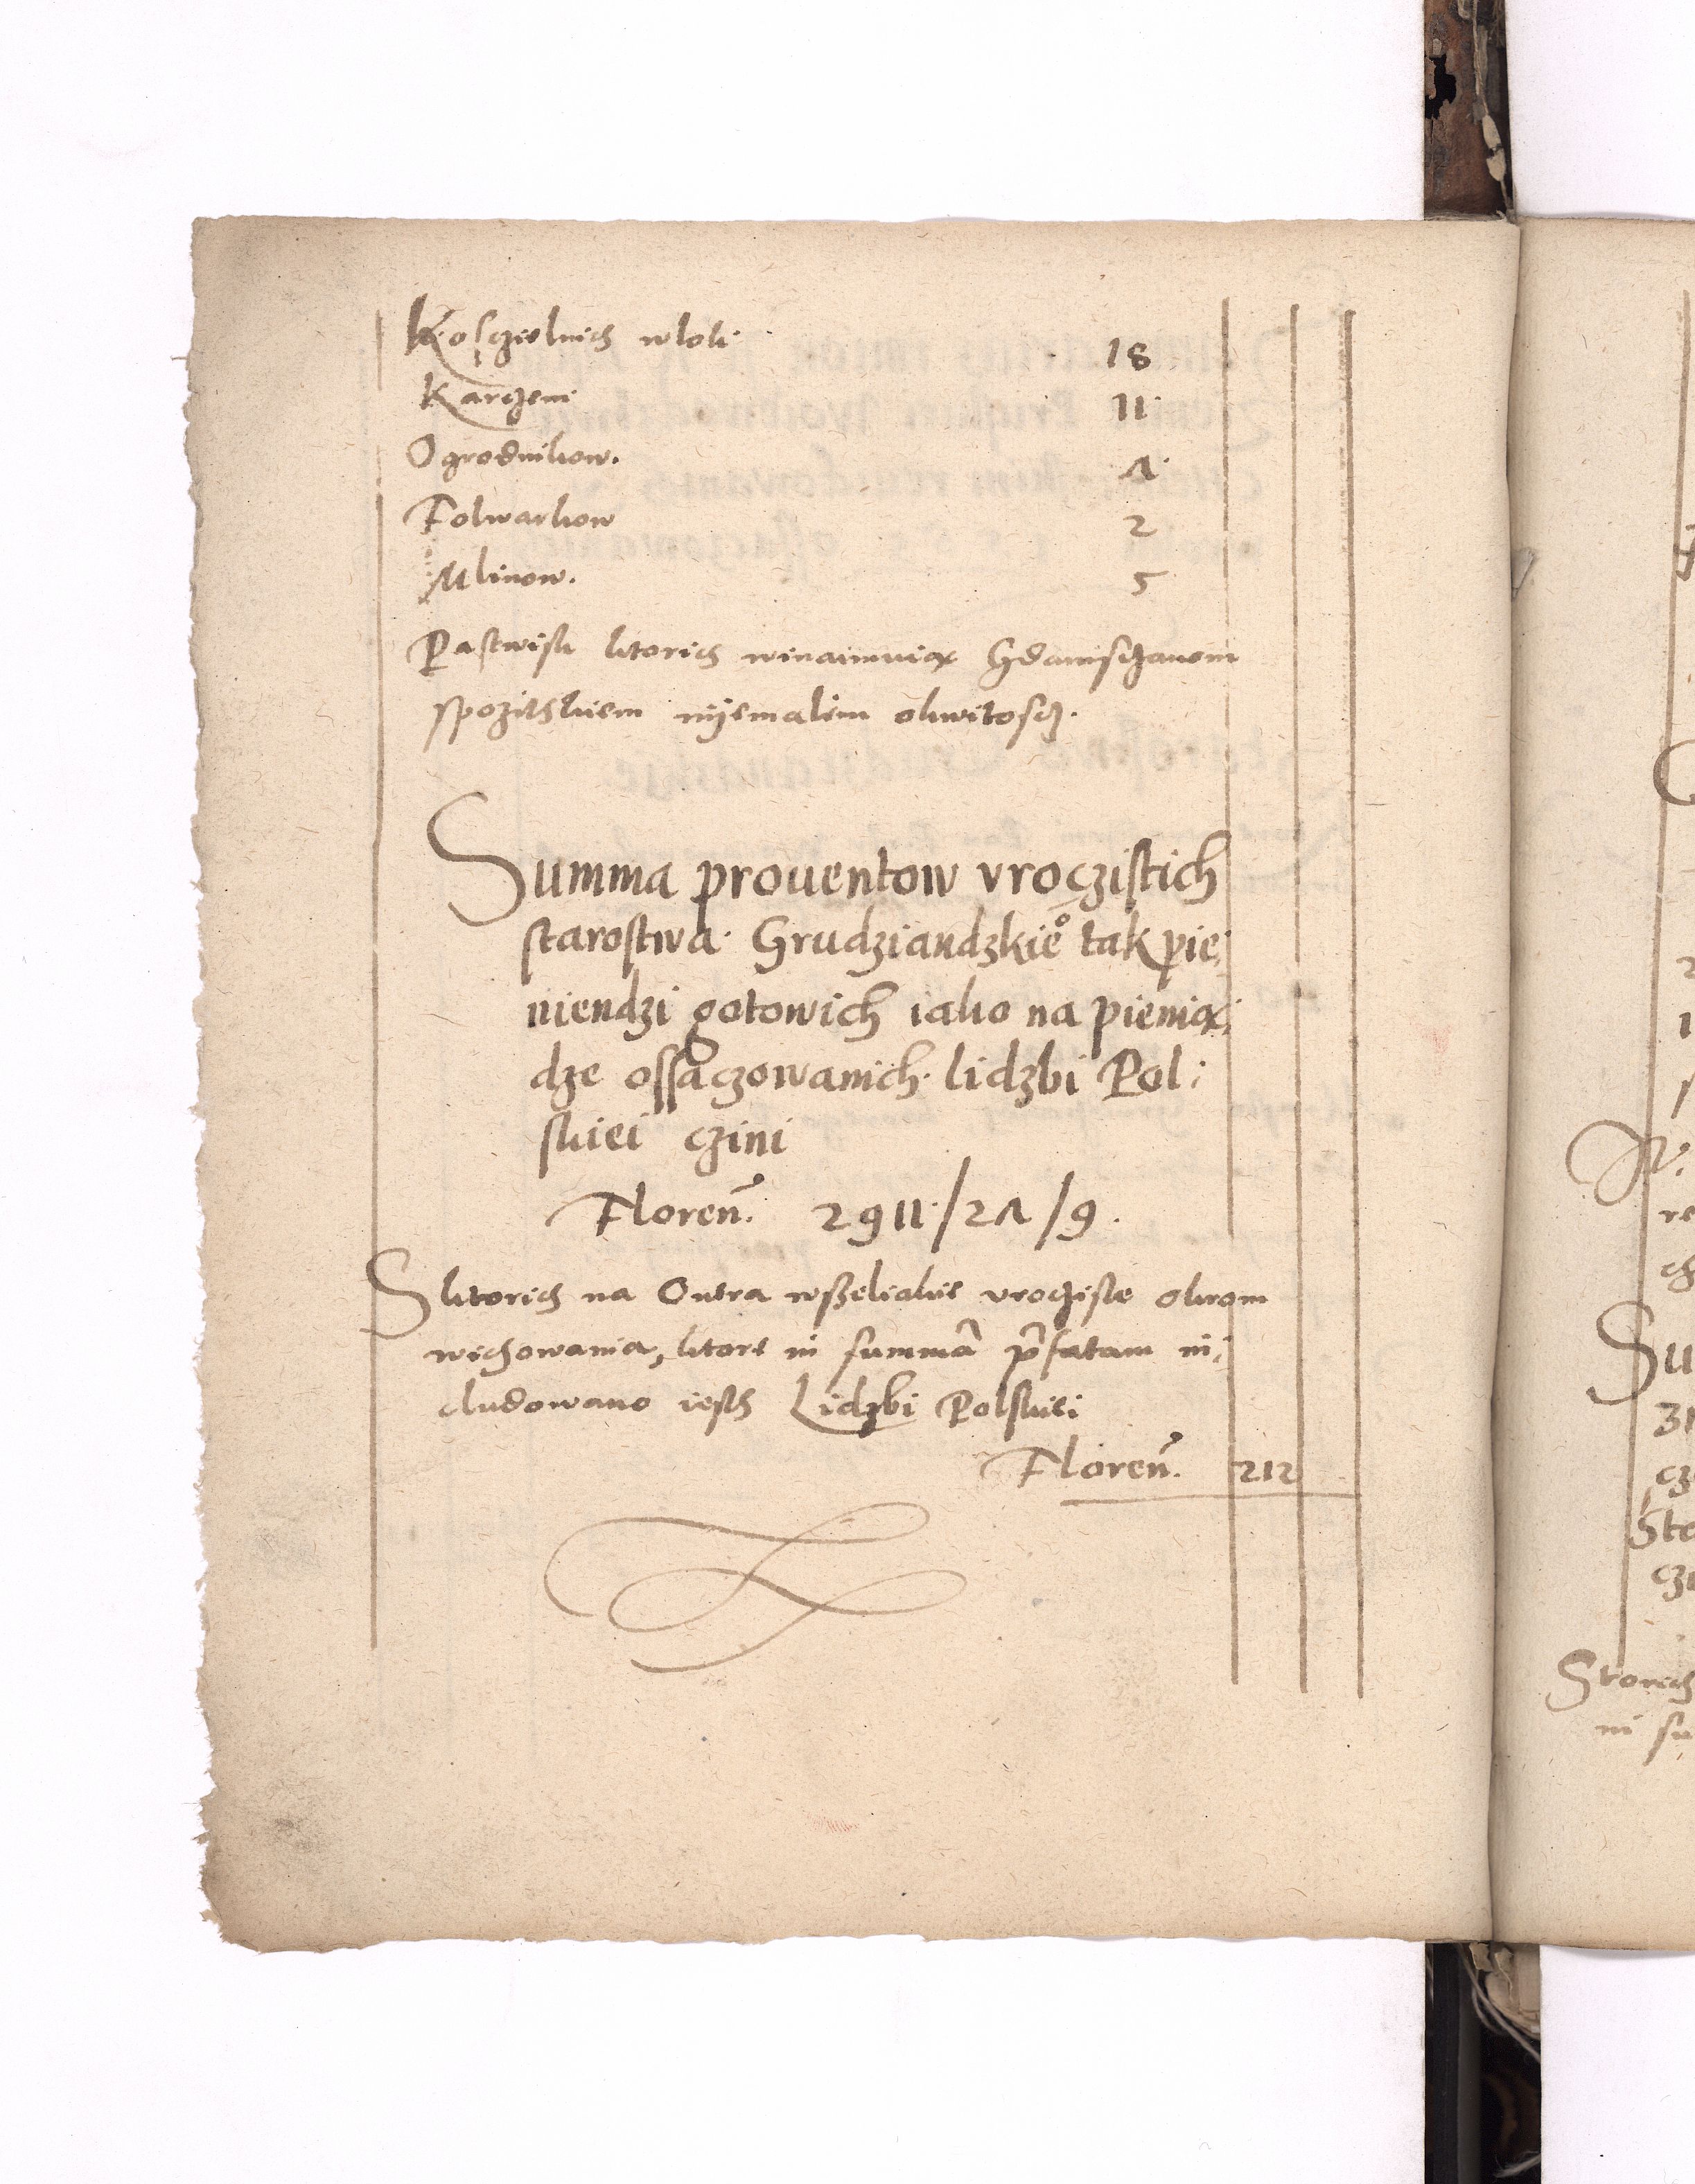 Kosczielnich wlok 18
Karczem 11
Ogrodnikow. 7
Folwarkow 2
Mlinow. 5
Pastwisk ktorich winaimuią Gdansczanom
spozitkiem niemalem okwitosc.
Summa prouentow vroczistich
starostwa Grudziandzkie° tak pie:
niendzi gotowich iako na pienią:
dze ossaczowanich lidzbi Pol:
skiei czini
Floren. 2911/27/9.
S ktorich na Outra wszeliakie vrocziste okrom
wichowania, ktore in summa p̃fatam in:
cludowano iesth Lidzbi Polskiei
Floren. 212